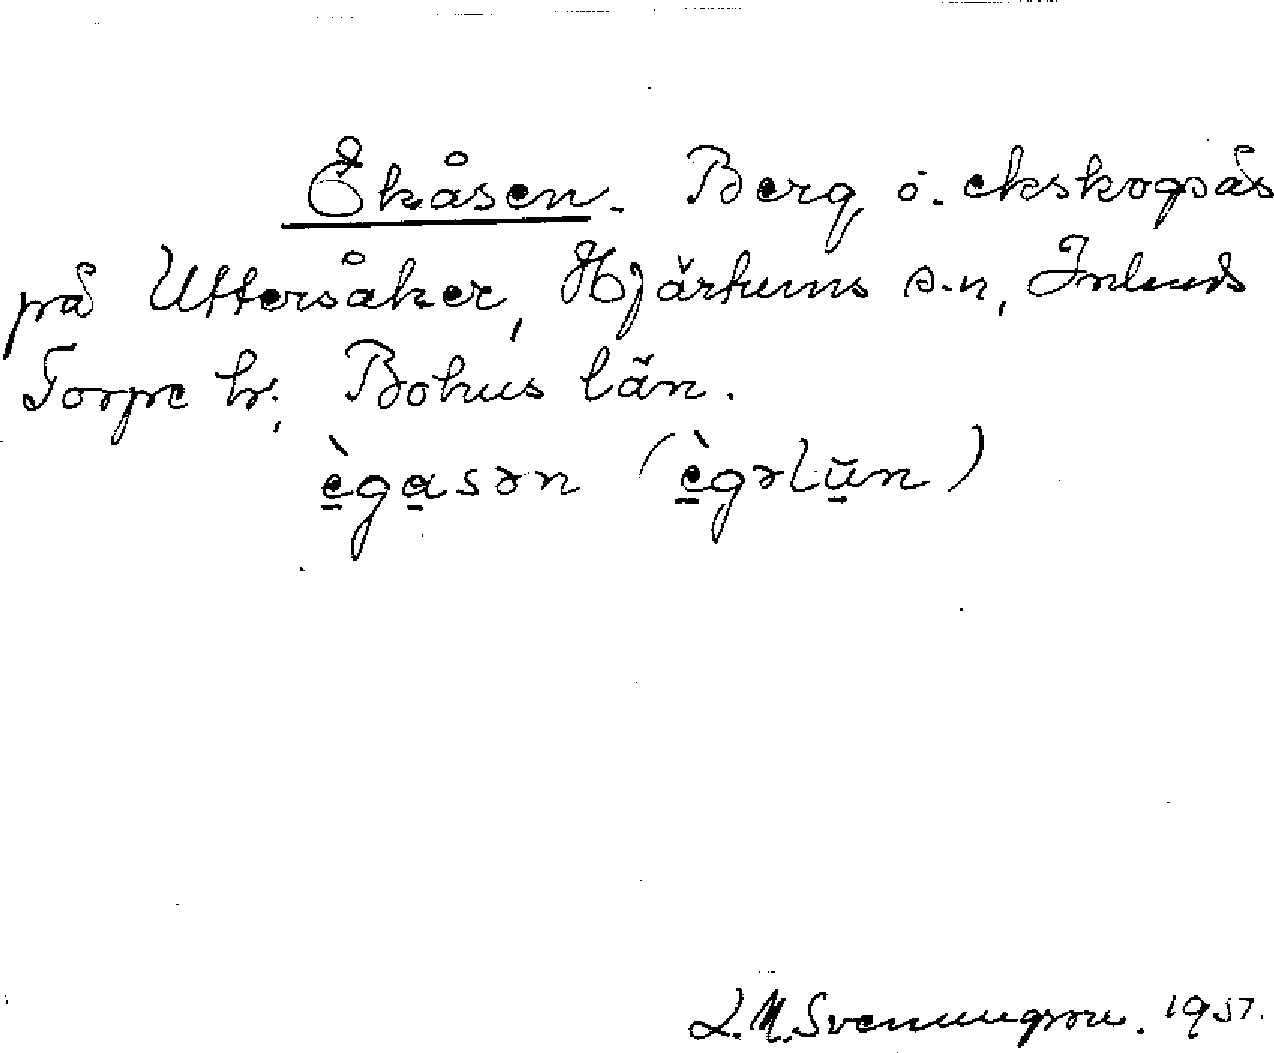 Ekåsen. Berg o. ekskogsås
på Uttersåker, Hjärtums s-n, Inlands
Torpe hr, Bohus län.
ègasən (ègəlūn)
L.M. Svenungsson. 1957.